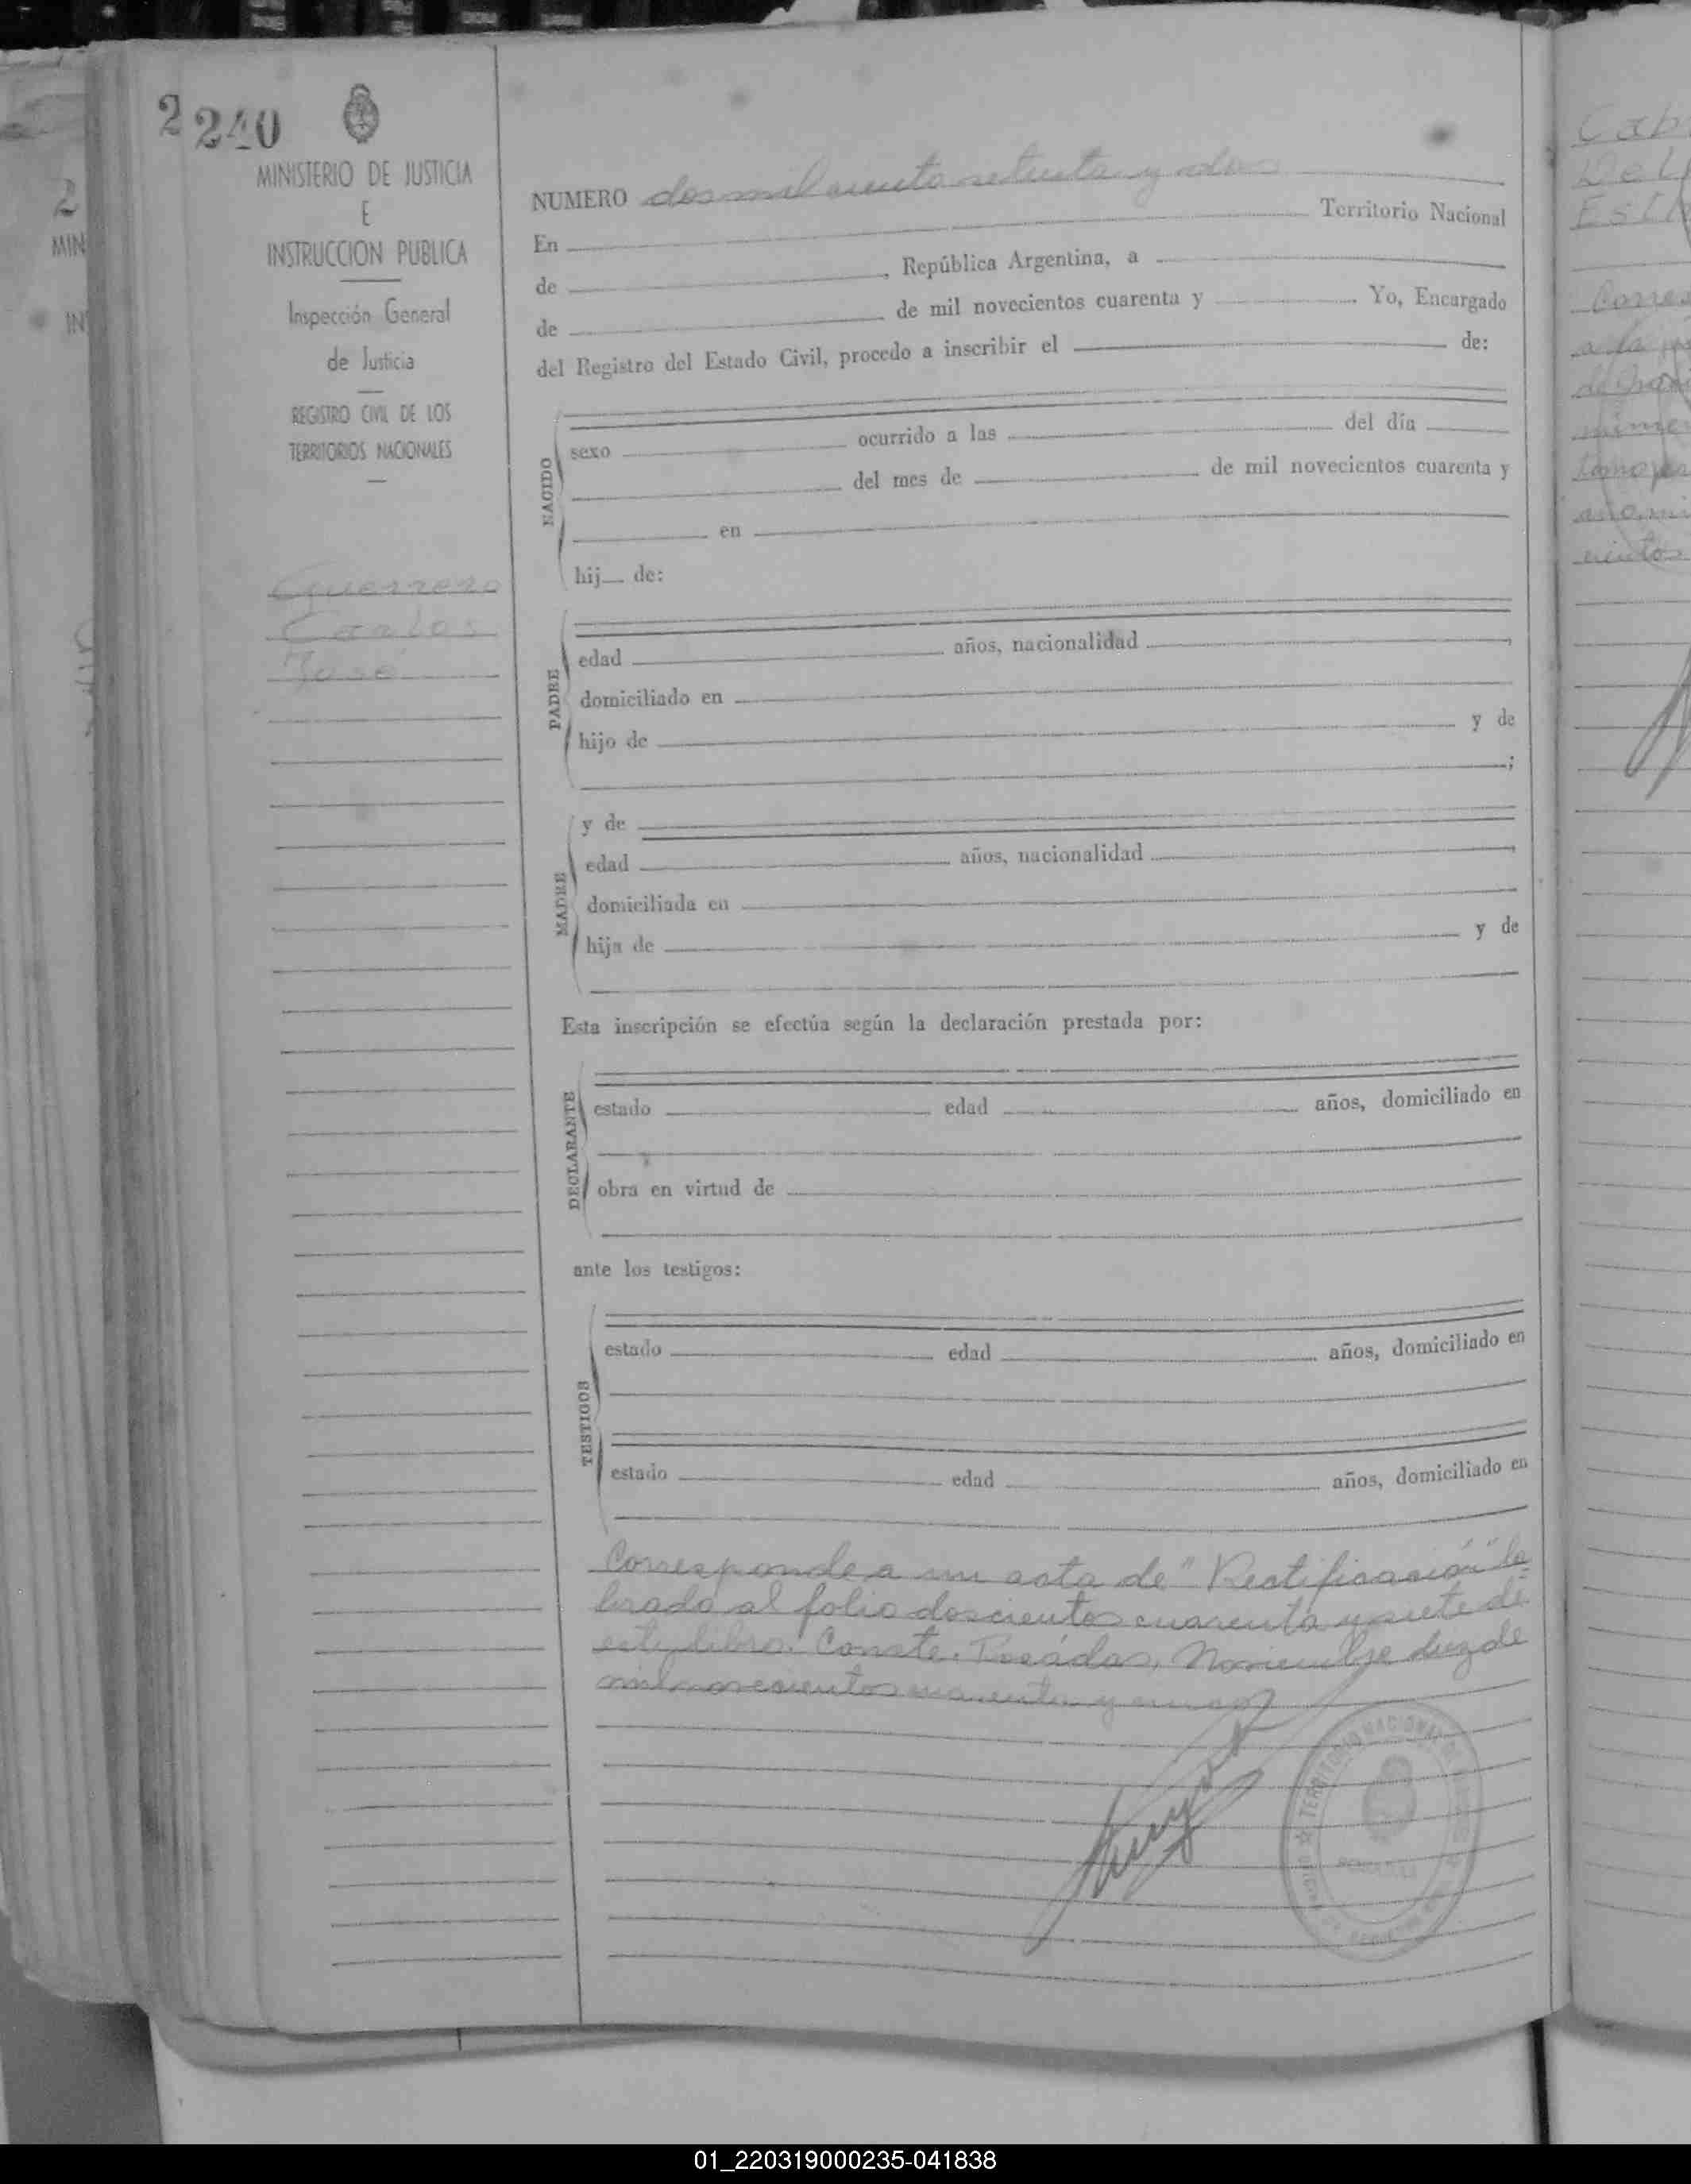 2 240
MINISTERIO DE JUSTICIA
E
INSTRUCCION PUBLICA
Inspección General
de Justicia
REGISTRO CIVIL DE LOS
TERRITORIOS NACIONALES
Guerrero
Carlos
José
NUMERO dos mil ciento setenta y dos
En Territorio Nacional
de , República Argentina, a
de de mil novecientos cuarenta y . Yo, Encargado
del Registro del Estado Civil, procedo a inscribir el de:
NACIDO
sexo ocurrido a las del día
del mes de de mil novecientos cuarenta y
en
hij de:
PADRE
edad años, nacionalidad ,
domiciliado en
hijo de y de
;
MADRE
y de
edad años, nacionalidad ,
domiciliada en
hija de y de
Esta inscripción se efectúa según la declaración prestada por:
DECLARANTE
estado edad años, domiciliado en
obra en virtud de
ante los testigos:
TESTIGOS
estado edad años, domiciliado en
estado edad años, domiciliado en
Corresponde a un acta de "Rectificación" la
brada al folio doscientos cuarenta y siete de
este libro. Conste. Posadas, Noviembre diez de
mil novecientos cuarenta y
TERRITORIO NACIONAL DE
2
MIN
IN
Cab
Del
Esth
Corres
a la
de
cientos
01_220319000235-041838